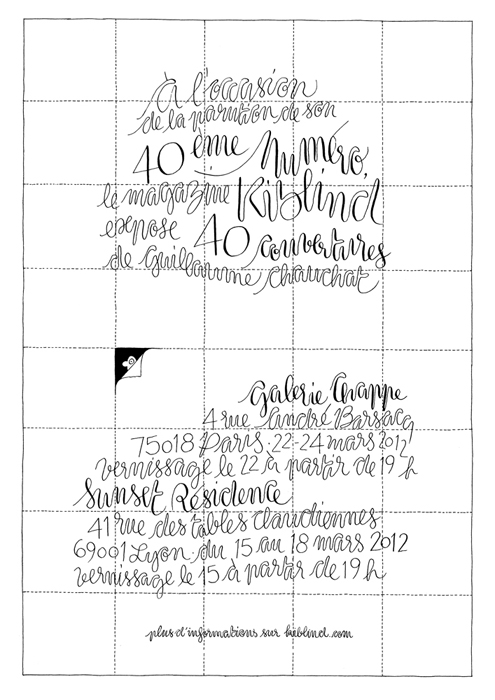 à l'occasion
de la parution de son
40 ème Numéro,
le magazine Kiblind
expose 40 couvertures
de Guillaume Chauchat
Galerie Chappe
4 rue André Barsacq
75018 Paris. 22-24 mars 2012
vernissage le 22 à partir de 19 h
Sunset Résidence
41 rue des tables claudiennes
69001 Lyon. du 15 au 18 mars 2012
vernissage le 15 à partir de 19 h
plus d'informations sur kiblind.com